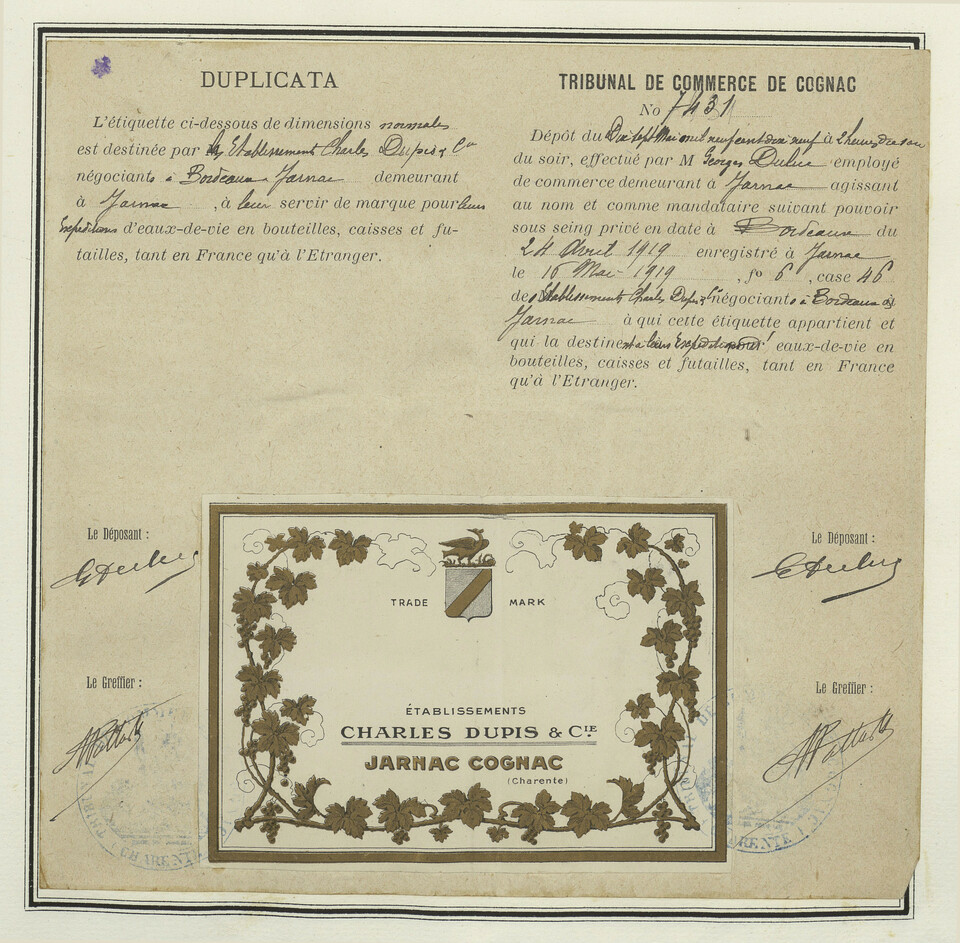 DUPLICATA
L'étiquette ci-dessous de dimensions normales
est destinée par les Etablissements Charles Dupis & Cie
négociants à Bordeaux & Jarnac demeurant
à Jarnac, à leur servir de marque pour leurs
Expéditions d'eaux-de-vie en bouteilles, caisses et fu-
tailles, tant en France qu'à l'Etranger.
TRIBUNAL DE COMMERCE DE COGNAC
No 7431
Dépôt du Dix sept Mai mil neuf cent dix neuf à 2 heures
du soir, effectué par M Georges employé
de commerce demeurant à Jarnac agissant
au nom et comme mandataire suivant pouvoir
sous seing privé en date à Bordeaux du
24 Avril 1919 enregistré à Jarnac
le 16 Mai 1919, fo 6, case 46
des Etablissements Charles Dupis & Cie négociants à Bordeaux &
Jarnac à qui cette étiquette appartient et
qui la destinent à leurs Expéditions d'eaux-de-vie en
bouteilles, caisses et futailles, tant en France
qu'à l'Etranger.
Le Déposant :
Le Déposant :
Le Greffier :
Le Greffier :
TRADE MARK
ÉTABLISSEMENTS
CHARLES DUPIS & CIE
JARNAC COGNAC
(Charente)
CHARENTE